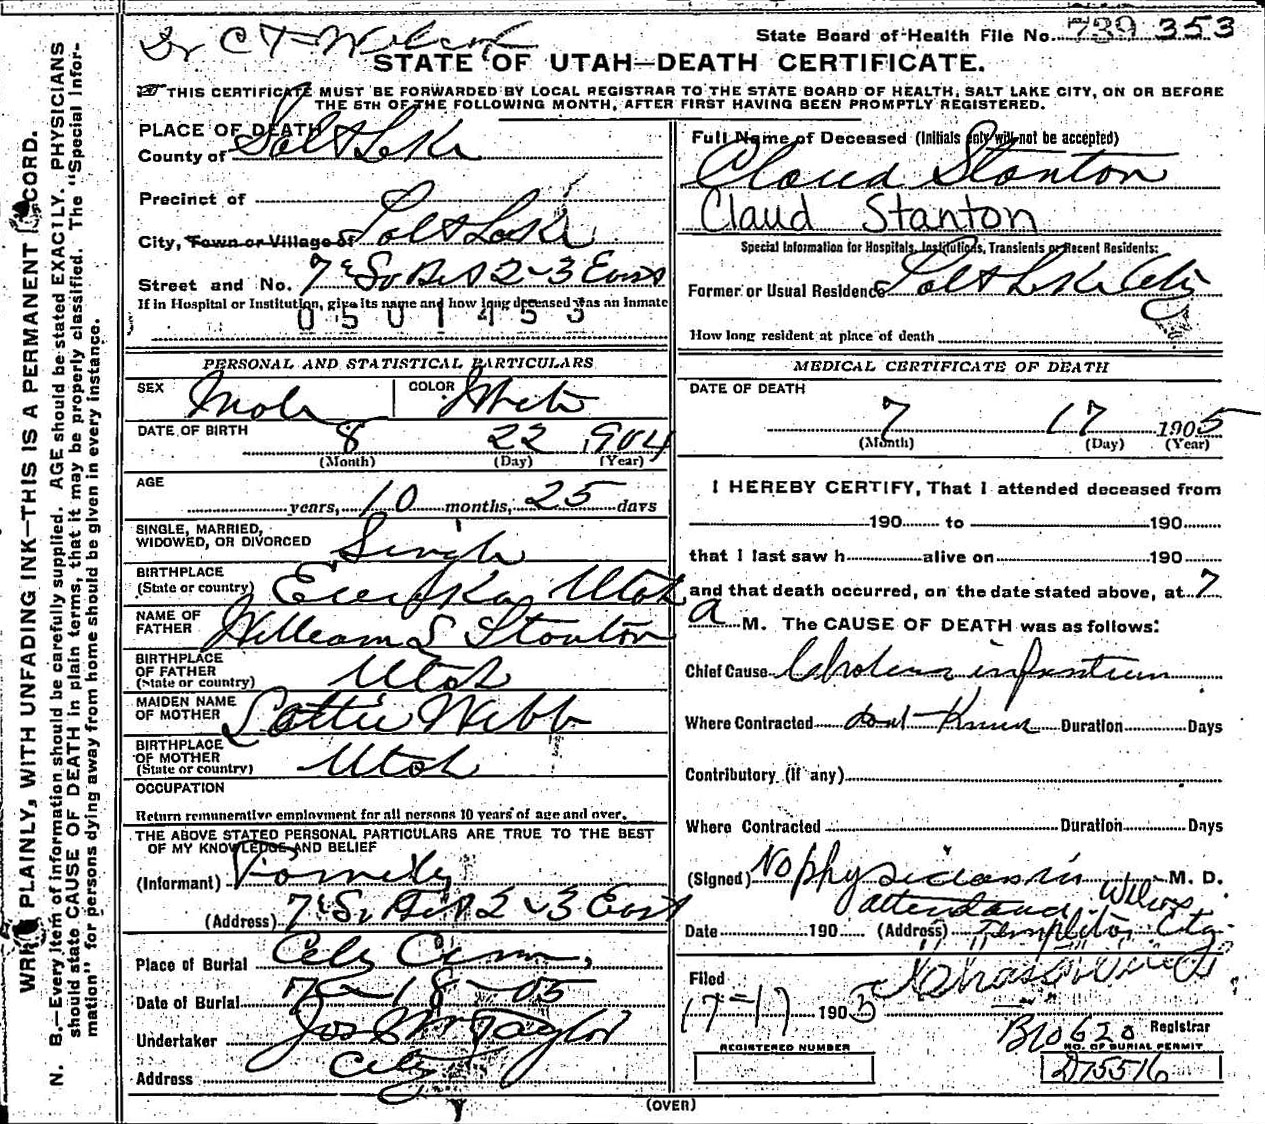 Dr C T Wilcox
State Board of Health File No. 739 353
STATE OF UTAH—DEATH CERTIFICATE.
THIS CERTIFICATE MUST BE FORWARDED BY LOCAL REGISTRAR TO THE STATE BOARD OF HEALTH, SALT LAKE CITY, ON OR BEFORE
THE 5TH OF THE FOLLOWING MONTH, AFTER FIRST HAVING BEEN PROMPTLY REGISTERED.
PLACE OF DEATH
County of Salt Lake
Precinct of
City, Town or Village of Salt Lake
Street and No. 7 So Bet 2-3 East
If in Hospital or Institution, give its name and how long deceased was an inmate
0501453
PERSONAL AND STATISTICAL PARTICULARS
SEX Male COLOR White
DATE OF BIRTH 8 22 1904
(Month) (Day) (Year)
AGE years, 10 months, 25 days
SINGLE, MARRIED,
WIDOWED, OR DIVORCED Single
BIRTHPLACE
(State or country) Eureka Utah
NAME OF
FATHER William S Stanton
BIRTHPLACE
OF FATHER
(State or country) Utah
MAIDEN NAME
OF MOTHER Lottie Webb
BIRTHPLACE
OF MOTHER
(State or country) Utah
OCCUPATION
Return remunerative employment for all persons 10 years of age and over.
THE ABOVE STATED PERSONAL PARTICULARS ARE TRUE TO THE BEST
OF MY KNOWLEDGE AND BELIEF
(Informant) Family
(Address) 7 So Bet 2-3 East
Place of Burial City Cem,
Date of Burial 7-18-05
Undertaker Jos Wm Taylor
Address City
Full Name of Deceased (Initials only will not be accepted)
Claud Stanton
Claud Stanton
Special Information for Hospitals, Institutions, Transients or Recent Residents:
Former or Usual Residence Salt Lake City
How long resident at place of death
MEDICAL CERTIFICATE OF DEATH
DATE OF DEATH
7 17 1905
(Month) (Day) (Year)
I HEREBY CERTIFY, That I attended deceased from
190 to 190
that I last saw h alive on 190
and that death occurred, on the date stated above, at 7
a M. The CAUSE OF DEATH was as follows:
Chief Cause Cholera infantum
Where Contracted dont Know Duration Days
Contributory (if any)
Where Contracted Duration Days
(Signed) No physician in M. D.
attendance Wilcox
Date 190 (Address) Templeton City
Filed
17-17 1905
Registrar
B10620
REGISTERED NUMBER NO. OF BURIAL PERMIT
D75516
(OVER)
WRITE PLAINLY, WITH UNFADING INK—THIS IS A PERMANENT RECORD.
N. B.—Every item of information should be carefully supplied. AGE should be stated EXACTLY. PHYSICIANS
should state CAUSE OF DEATH in plain terms, that it may be properly classified. The "Special Infor-
mation" for persons dying away from home should be given in every instance.